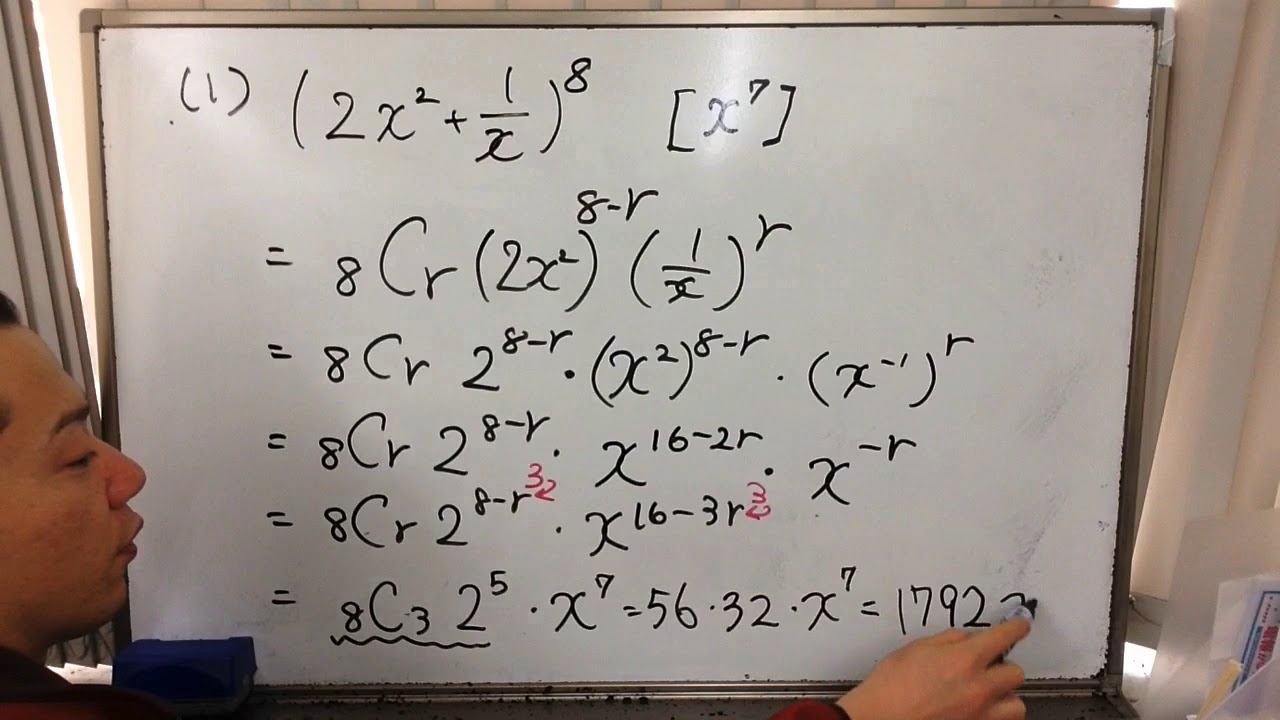 (1) (2x² + 1/x)⁸ [x⁷]
= ₈Cr (2x²)⁸⁻ʳ (1/x)ʳ
= ₈Cr 2⁸⁻ʳ · (x²)⁸⁻ʳ · (x⁻¹)ʳ
= ₈Cr 2⁸⁻ʳ · x¹⁶⁻²ʳ · x⁻ʳ
3 3
= ₈Cr 2⁸⁻ʳ · x¹⁶⁻³ʳ
= ₈C₃ 2⁵ · x⁷ = 56 · 32 · x⁷ = 1792